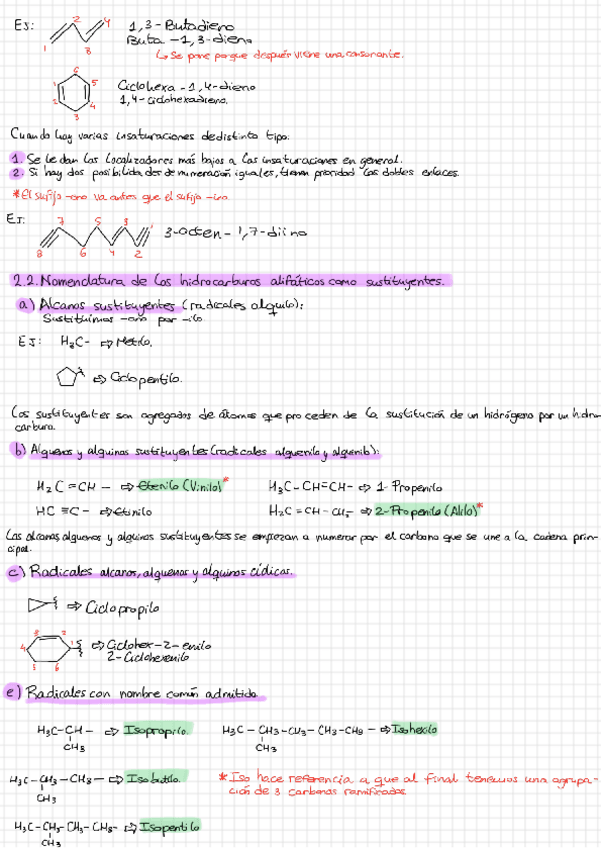 Ej:
1,3-Butadieno
Buta-1,3-dieno
↳ Se pone porque después viene una consonante.
1 2 3 4
Ciclohexa-1,4-dieno
1,4-ciclohexadieno.
1 2 3 4 5 6
Cuando hay varias insaturaciones de distinto tipo:
1. Se le dan los localizadores más bajos a las insaturaciones en general.
2. Si hay dos posibilidades de numeración iguales, tienen prioridad los dobles enlaces.
*El sufijo -eno va antes que el sufijo -ino.
Ej:
8 7 6 5 4 3 2 1
3-Octen-1,7-diino
2.2. Nomenclatura de los hidrocarburos alifáticos como sustituyentes.
a) Alcanos sustituyentes (radicales alquilo):
Sustituimos -ano por -ilo.
Ej: H₃C- ⇒ Metilo.
⇒ Ciclopentilo.
Los sustituyentes son agregados de átomos que proceden de la sustitución de un hidrógeno por un hidro-
carburo.
b) Alquenos y alquinos sustituyentes (radicales alquenilo y alquinilo):
H₂C=CH- ⇒ Etenilo (Vinilo)*
H₃C-CH=CH- ⇒ 1-Propenilo
HC≡C- ⇒ Etinilo
H₂C=CH-CH₂- ⇒ 2-Propenilo (Alilo)*
Los alcanos alquenos y alquinos sustituyentes se empiezan a numerar por el carbono que se une a la cadena prin-
cipal.
c) Radicales alcanos, alquenos y alquinos cíclicos.
⇒ Ciclopropilo
1 2 3 4 5 6
⇒ Ciclohex-2-enilo
2-Ciclohexenilo
e) Radicales con nombre común admitido
H₃C-CH- ⇒ Isopropilo.
CH₃
⇒ Isohexilo
CH₃
⇒ Isobutilo.
CH₃
*Iso hace referencia a que al final tenemos una agrupa-
ción de 3 carbonos ramificados.
⇒ Isopentilo
CH₃